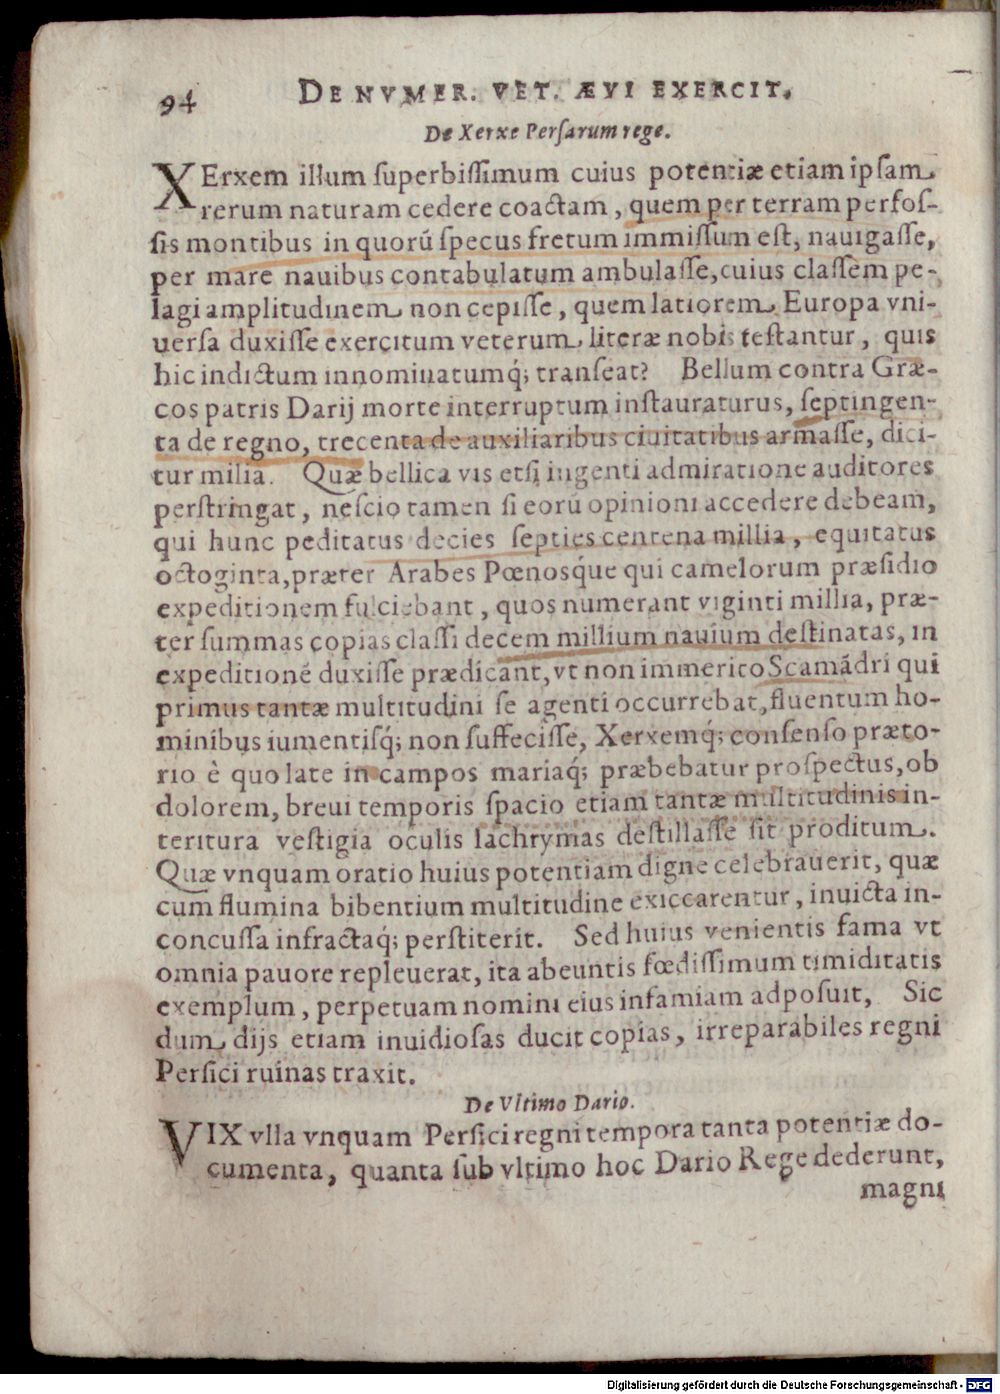 94 DE NVMER. VET. ÆVI EXERCIT.
De Xerxe Perſarum rege.
XErxem illum ſuperbiſſimum cuius potentiæ etiam ipſam
rerum naturam cedere coactam, quem per terram perfoſ-
ſis montibus in quorū ſpecus fretum immiſſum eſt, nauigaſſe,
per mare nauibus contabulatum ambulaſſe, cuius claſſem pe-
lagi amplitudinem non cepiſſe, quem latiorem Europa vni-
uerſa duxiſſe exercitum veterum literæ nobis teſtantur, quis
hic indictum innominatumq́; tranſeat? Bellum contra Græ-
cos patris Darij morte interruptum inſtauraturus, ſeptingen-
ta de regno, trecenta de auxiliaribus ciuitatibus armaſſe, dici-
tur milia. Quæ bellica vis etſi ingenti admiratione auditores
perſtringat, neſcio tamen ſi eorū opinioni accedere debeam,
qui hunc peditatus decies ſepties centena millia, equitatus
octoginta, præter Arabes Pœnosq́ue qui camelorum præſidio
expeditionem fulciebant, quos numerant viginti millia, præ-
ter ſummas copias claſſi decem millium nauium deſtinatas, in
expeditionē duxiſſe prædicant, vt non immerito Scamādri qui
primus tantæ multitudini ſe agenti occurrebat, fluentum ho-
minibus iumentiſq́; non ſuffeciſſe, Xerxemq́; conſenſo præto-
rio è quo late in campos mariaq́; præbebatur proſpectus, ob
dolorem, breui temporis ſpacio etiam tantæ multitudinis in-
teritura veſtigia oculis lachrymas deſtillaſſe ſit proditum.
Quæ vnquam oratio huius potentiam digne celebrauerit, quæ
cum flumina bibentium multitudine exiccarentur, inuicta in-
concuſſa infractaq́; perſtiterit. Sed huius venientis fama vt
omnia pauore repleuerat, ita abeuntis fœdiſſimum timiditatis
exemplum, perpetuam nomini eius infamiam adpoſuit, Sic
dum dijs etiam inuidioſas ducit copias, irreparabiles regni
Perſici ruinas traxit.
De Vltimo Dario.
VIX vlla vnquam Perſici regni tempora tanta potentiæ do-
cumenta, quanta ſub vltimo hoc Dario Rege dederunt,
magni
Digitalisierung gefördert durch die Deutsche Forschungsgemeinschaft - DFG